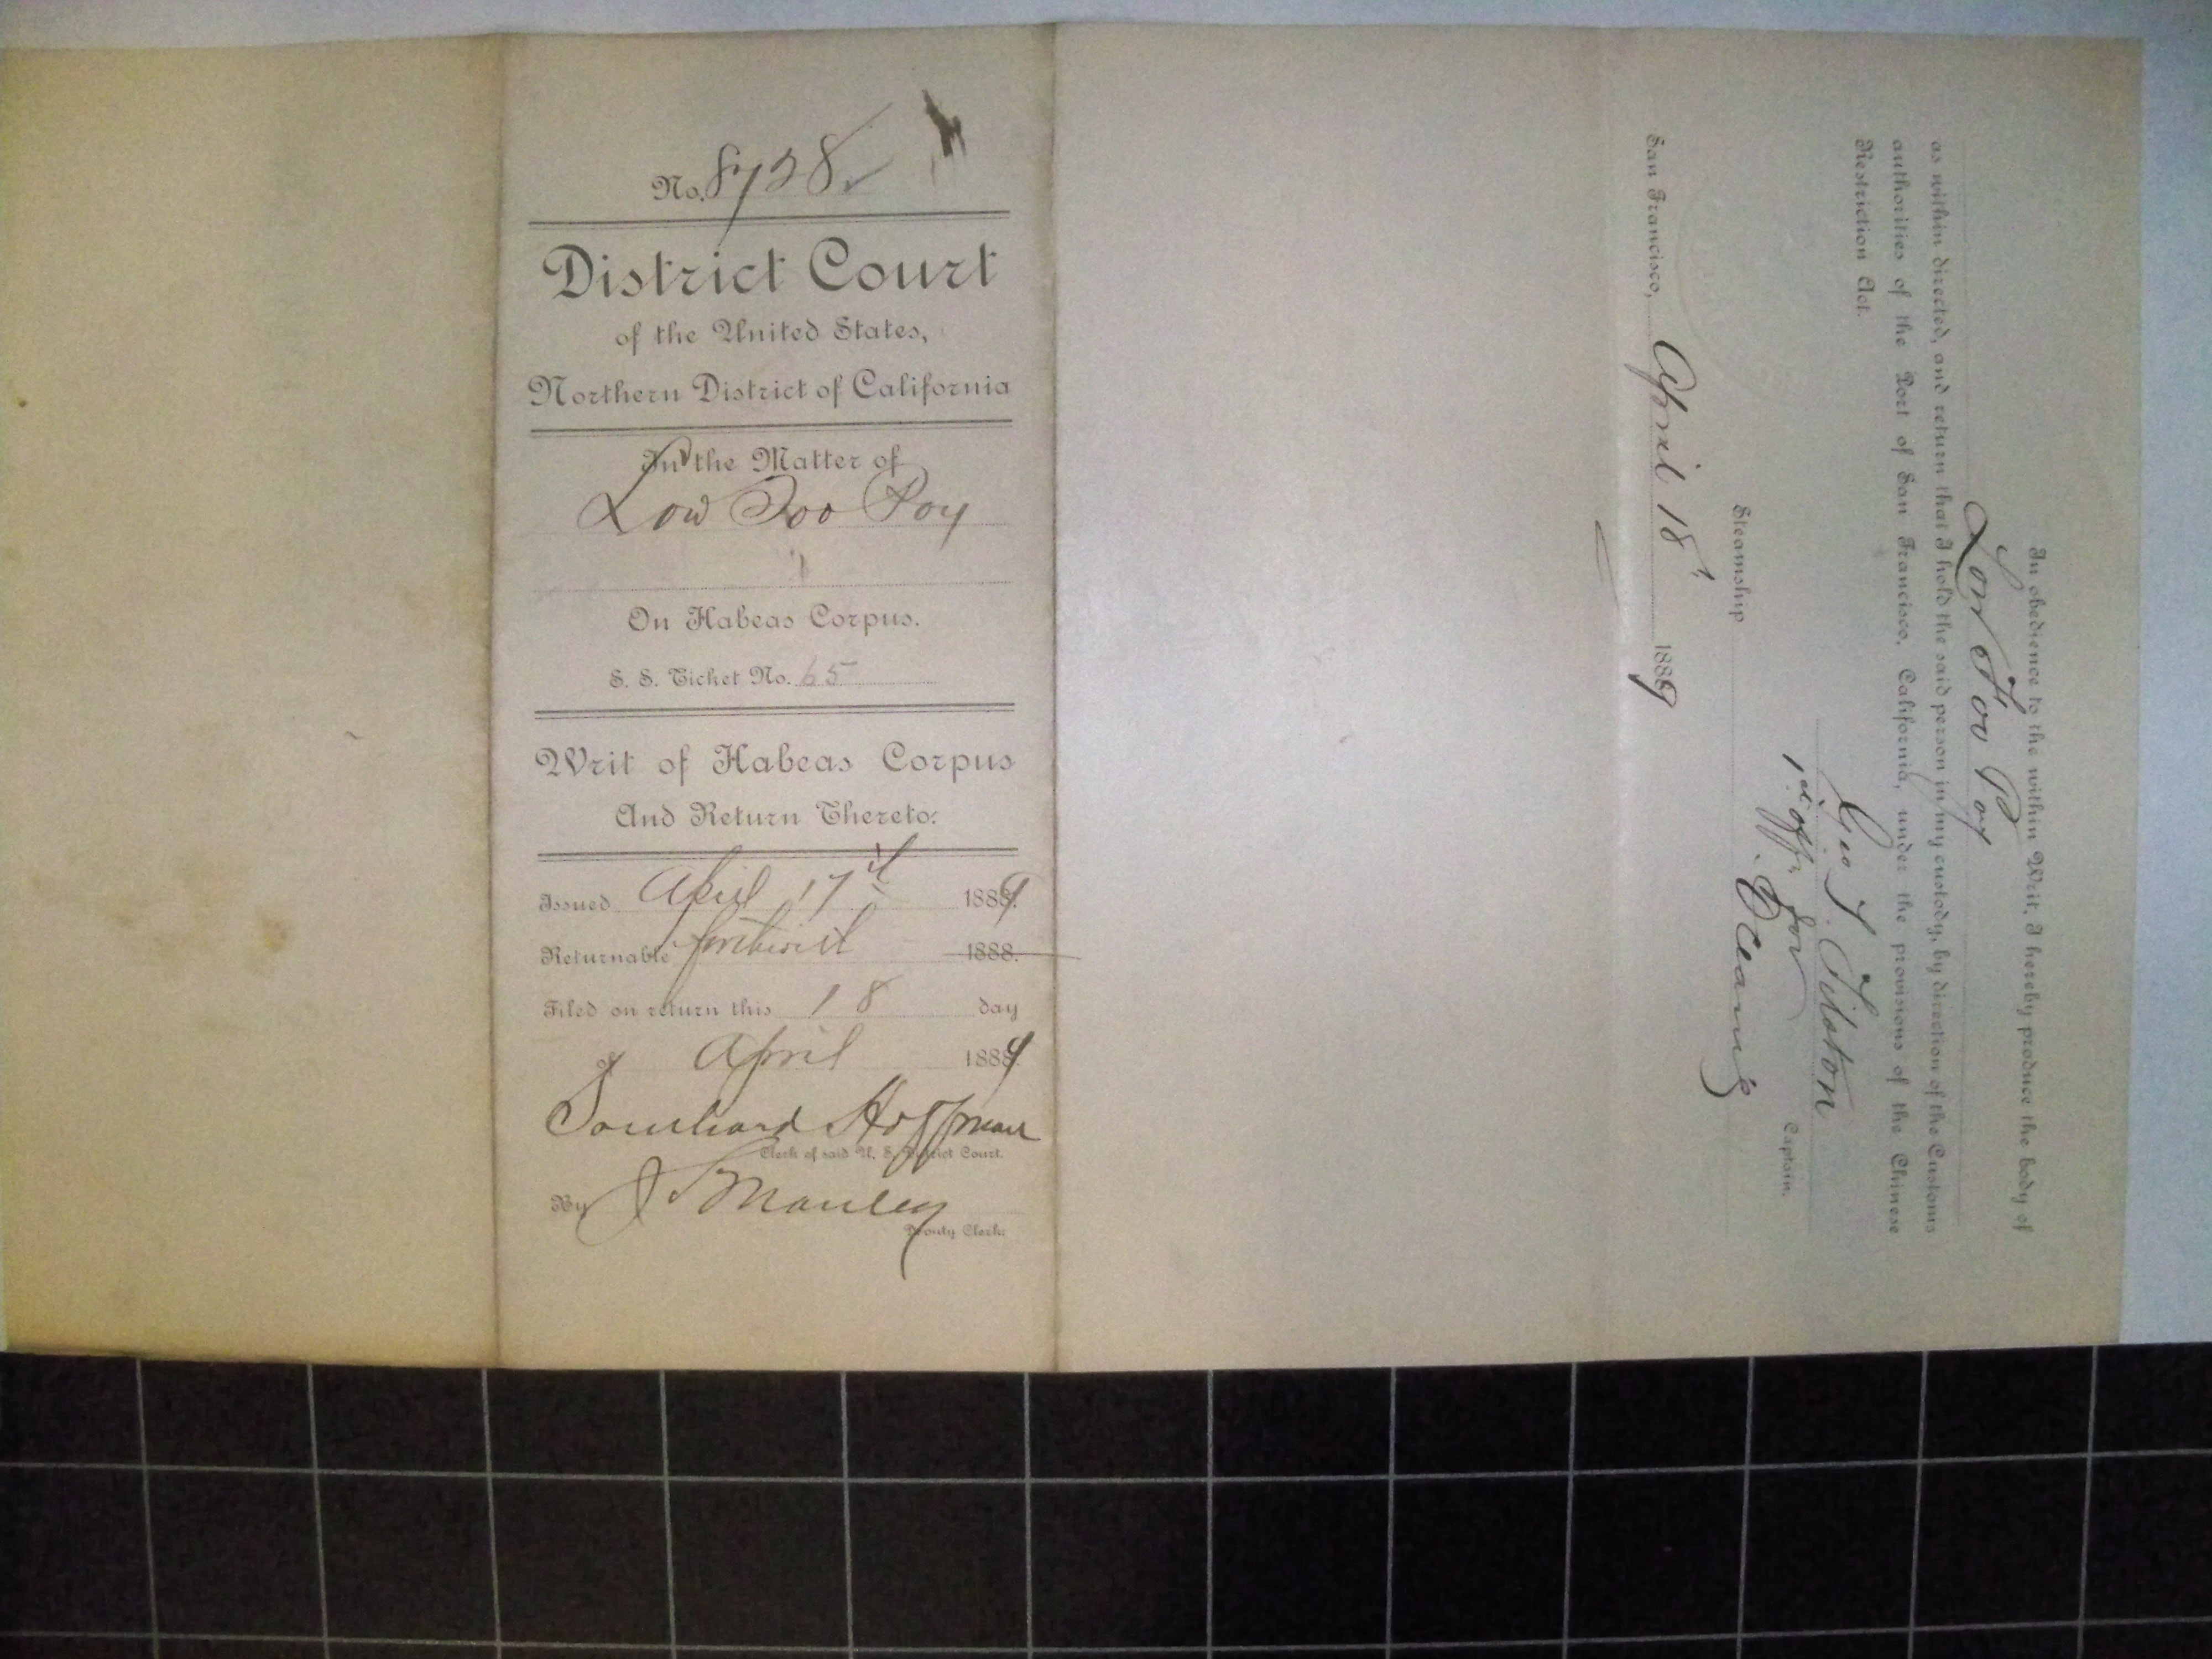 No. 8728
District Court
of the United States,
Northern District of California
In the Matter of
Low Foo Poy
On Habeas Corpus.
S. S. Ticket No. 65
Writ of Habeas Corpus
And Return Thereto:
Issued April 17th 1889.
Returnable forthwith 1888.
Filed on return this 18 day
of April 1889.
Southard Hoffman
Clerk of said U. S. District Court.
By J S Manley
Deputy Clerk.
In obedience to the within Writ, I hereby produce the body of
Low Foo Poy
as within directed, and return that I hold the said person in my custody, by direction of the Customs
authorities of the Port of San Francisco, California, under the provisions of the Chinese
Restriction Act.
Geo T. Tilston
1st off. for Captain.
Steamship Oceanic
San Francisco, April 18, 1889